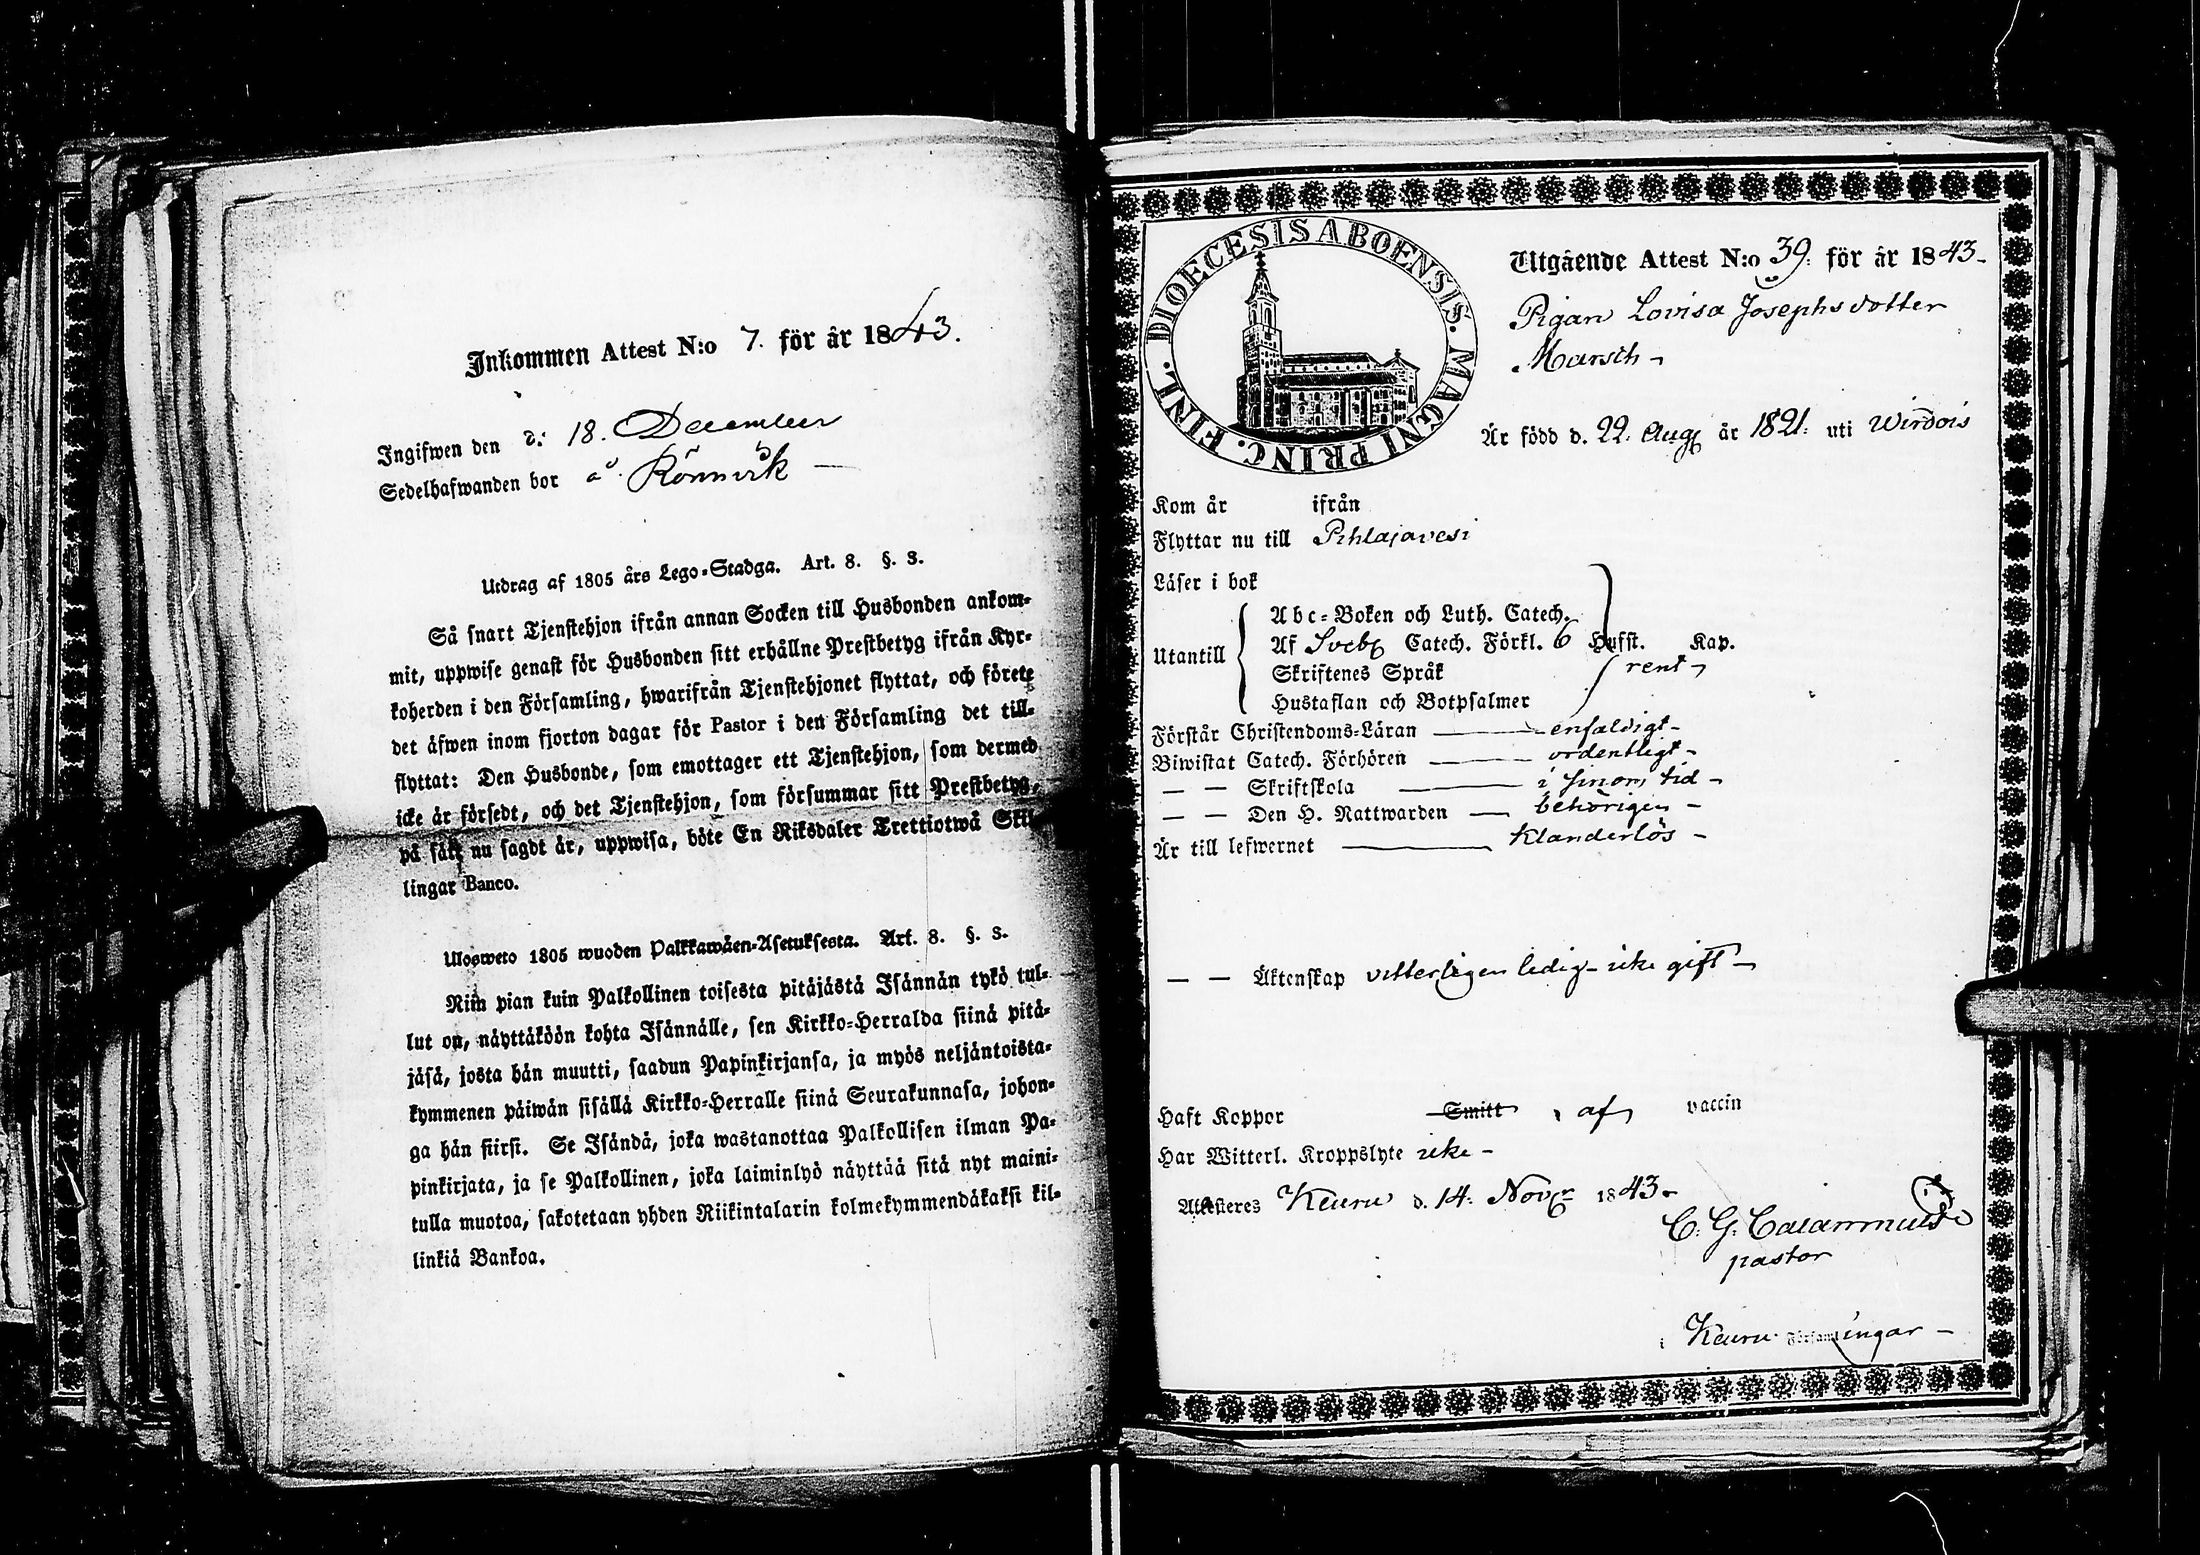 Inkommen Attest N:o 7. för år 1843.
Ingifwen den d: 18. December
Sedelhafwanden bor å Rönnvik —
Utdrag af 1805 års Lego-Stadga. Art. 8. §. 3.
Så snart Tjenstehjon ifrån annan Socken till Husbonden ankom-
mit, uppwise genast för Husbonden sitt erhållne Prestbetyg ifrån Kyr-
koherden i den Församling, hwarifrån Tjenstehjonet flyttat, och förete
det äfwen inom fjorton dagar för Pastor i den Församling det till-
flyttat: Den Husbonde, som emottager ett Tjenstehjon, som dermed
icke är försedt, och det Tjenstehjon, som försummar sitt Prestbetyg,
på sätt nu sagdt är, uppwisa, böte En Riksdaler Trettiotwå Skil-
lingar Banco.
Ulosweto 1805 wuoden Palkkawäen-Asetuksesta. Art. 8. §. 3.
Niin pian kuin Palkollinen toisesta pitäjästä Isännän tykö tul-
lut on, näyttäköön kohta Isännälle, sen Kirkko-Herralda siinä pitä-
jäsä, josta hän muutti, saadun Papinkirjansa, ja myös neljäntoista-
kymmenen päiwän sisällä Kirkko-Herralle siinä Seurakunnasa, johon-
ga hän siirsi. Se Isändä, joka wastanottaa Palkollisen ilman Pa-
pinkirjata, ja se Palkollinen, joka laiminlyö näyttää sitä nyt maini-
tulla muotoa, sakotetaan yhden Riikintalarin kolmekymmendäkaksi kil-
linkiä Bankoa.
DIOECESIS ABOENSIS. MAGNI PRINC. FINL.
Utgående Attest N:o 39: för år 1843-
Pigan Lovisa Josephsdotter
Marsch -
Är född d. 22. Aug är 1821: uti Wirdois
Kom år ifrån
Flyttar nu till Pihlajavesi
Läser i bok
Utantill
Abc-Boken och Luth. Catech.
Af Sveb Catech. Förkl. 6 Hufst. Kap.
Skriftenes Språk rent
Hustaflan och Botpsalmer
Förstår Christendoms-Läran — enfaldigt -
Biwistat Catech. Förhören — ordentligt -
— — Skriftskola — i sinom tid -
— — Den H. Nattwarden — behörigen -
Är till lefwernet — Klanderlös -
— — Äktenskap vetterligen ledig - icke gift -
Haft Koppor Smitt, af vaccin
Har Witterl. Kroppslyte icke -
Attesteres Keuru d. 14: Novr 1843.
C. G.
pastor
i Keuru Församlingar -